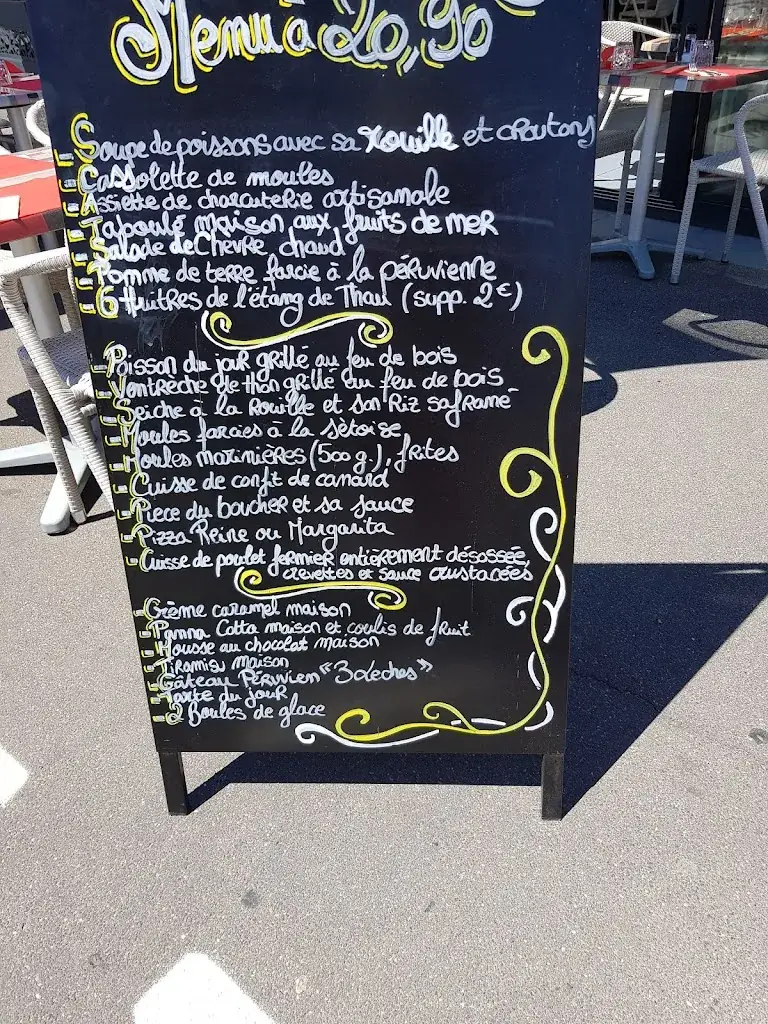 Menu à 20,90
Soupe de poissons avec sa rouille et croutons
Cassolette de moules
Assiette de charcuterie artisanale
Taboulé maison aux fruits de mer
Salade de Chèvre chaud
Pomme de terre farcie à la péruvienne
6 Huitres de l'étang de Thau (supp. 2€)
Poisson du jour grillé au feu de bois
Ventrèche de thon grillé au feu de bois
Seiche à la Rouille et son Riz safrané
Moules farcies à la sètoise
Moules marinières (500g.), frites
Cuisse de confit de canard
Pièce du boucher et sa sauce
Pizza Reine ou Margarita
Cuisse de poulet fermier entièrement désossée,
crevettes et sauce crustacées
Crème caramel maison
Panna Cotta maison et coulis de fruit
Mousse au chocolat maison
Tiramisu maison
Gâteau Péruvien "3 Leches"
Tarte du jour
2 Boules de glace